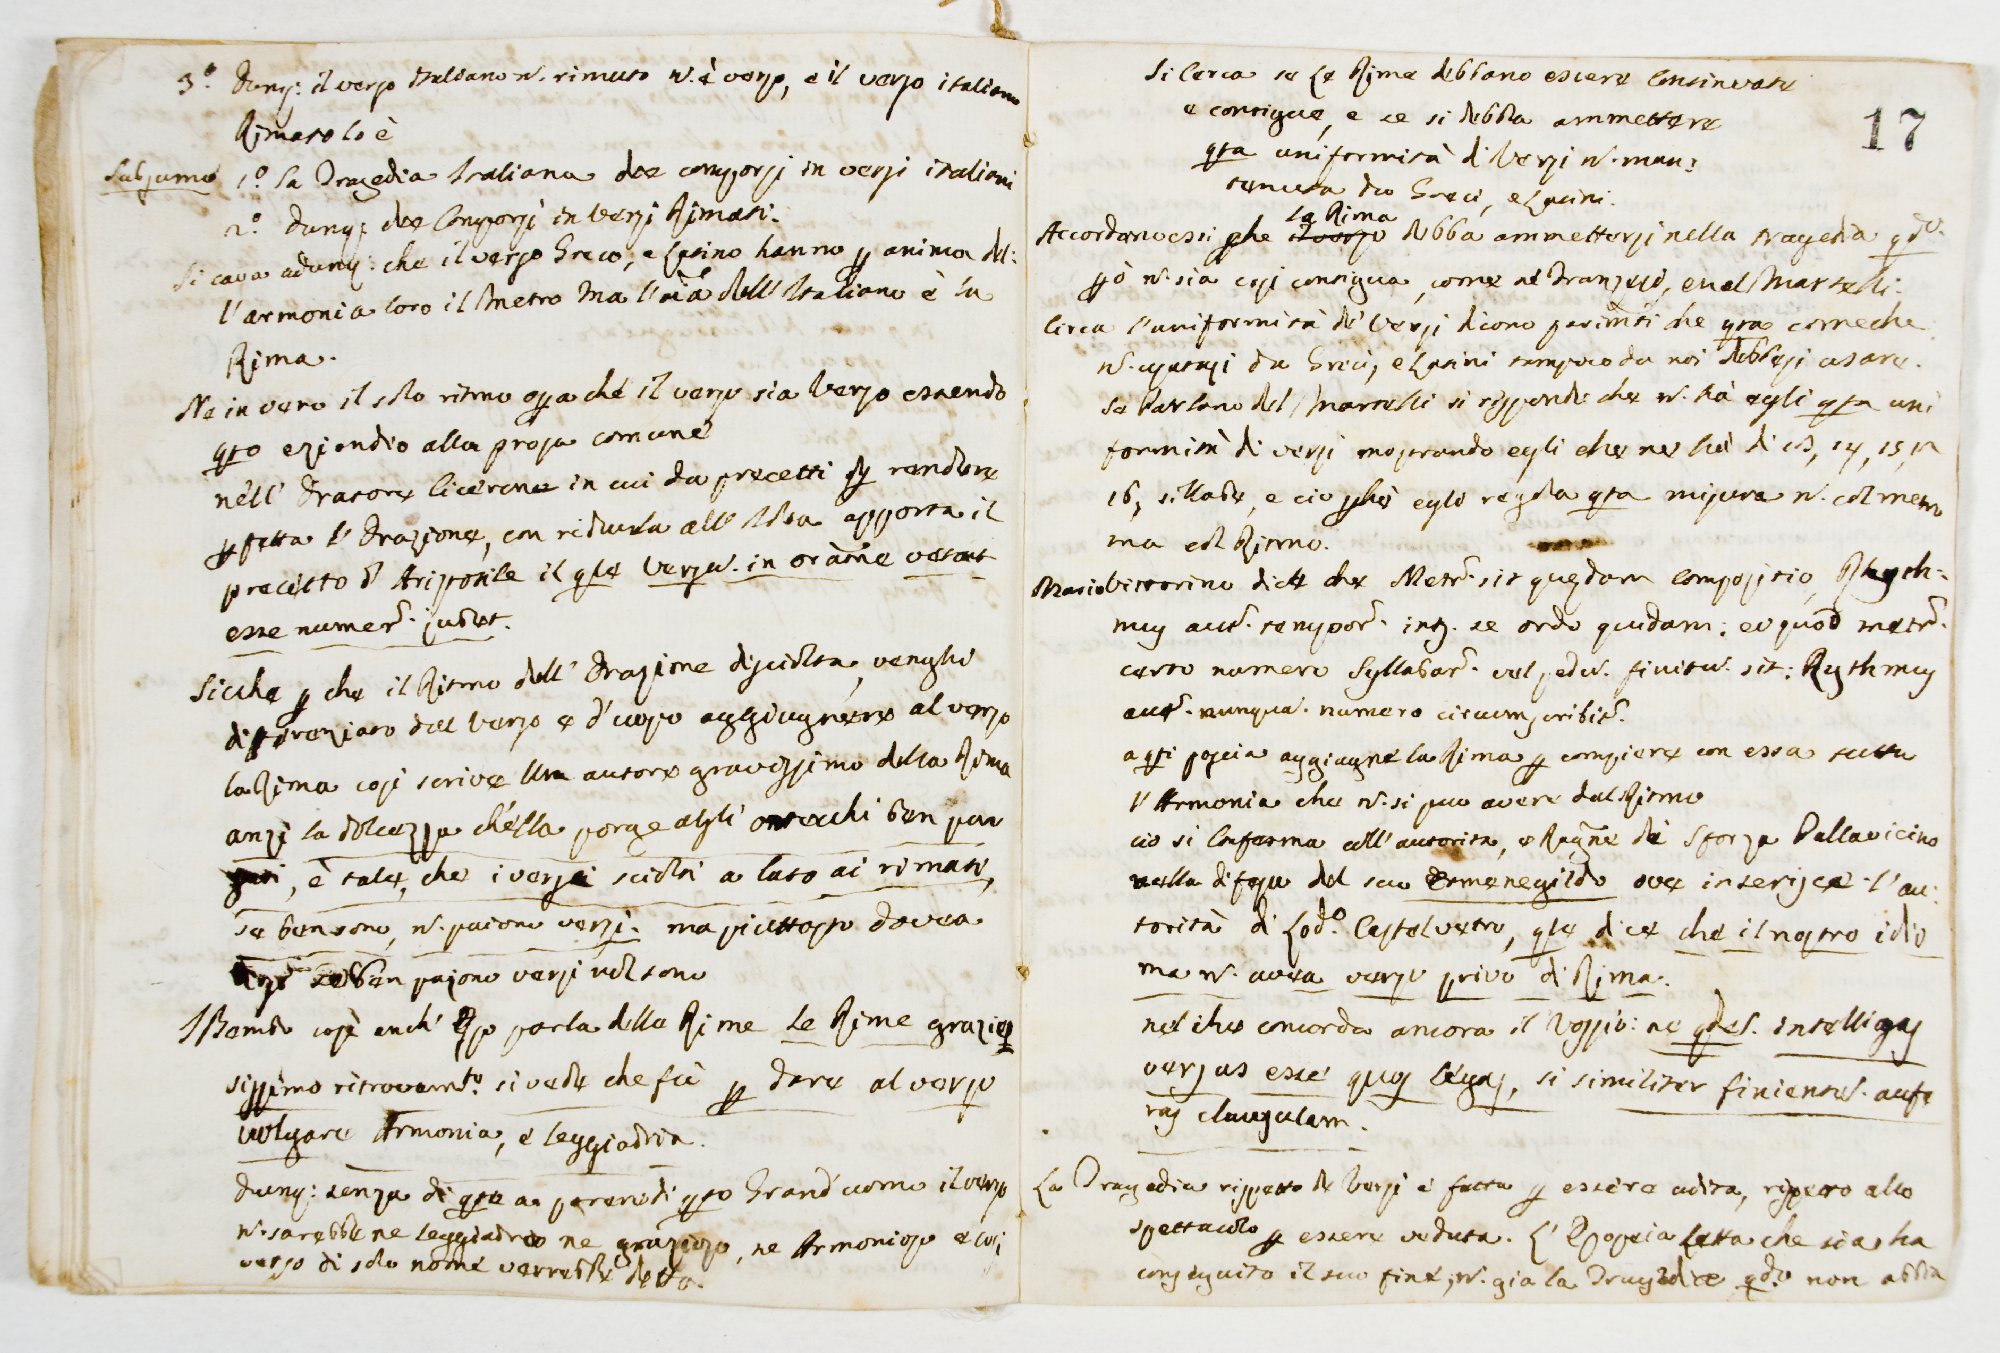 3.° Dunq: il verso Italiano n. rimato n. è verso, e il verso italiano
Rimato lo è
Subsumo 1.° La Tragedia Italiana dee comporsi in versi italiani
2.° Dunq: dee comporsi in versi Rimati.
Si cava adunq: che il verso Greco, e Latino hanno p anima del:
l'armonia loro il Metro Ma l'aia dell'Italiano è la
Rima.
Ne in vero il solo ritmo opra che il verso sia verso essendo
qto eziandio alla prosa comune
nell' Oratore Cicerone in cui da precetti p rendere
pfetta l'Orazione, con ridurla all'Idea apporta il
precetto d' Aristotile il qle versu. in oraõne vetat
esse numer. jubet.
Sicche p che il Ritmo dell' Orazione disciolta, venghi
differenziato dal verso è d'uopo aggiugnere al verso
la Rima cosi scrive Un autore gravissimo della Rima
anzi la dolcezza ch'ella porge agli orecchi ben pur
gati, è tale, che i versi sciolti a lato ai rimati,
se ben sono, n. paiono versi. ma piuttosto dovea
dirsi seben pajono versi nol sono
Il Bembo così anch' Esso parla delle Rime Le Rime grazio
sissimo ritrovamto si vede che fù p dare al verso
volgare Armonia, e leggiadria.
Dunq: senza di qste a parere di qsto Grand'uomo il verso
n. sarebbe ne leggiadro ne grazioso, ne Armonioso e così
verso di solo nome verrebbe detto.
17
Si cerca se Le Rime debbano essere continuate
e contigue, e se si debba ammettere
qta uniformità di Versi n. man:
tenuta da Greci, e Latini.
Accordano essi che la Rima debba ammettersi nella tragedia qdo.
pò n. sia cosi contigua, come ne' Franzesi, e nel Martelli.
Circa l'uniformità de' Versi dicono parimti che qta comeche
n. usatasi da Greci, e Latini tampoco da noi debbesi usare.
Se Parlano del Martelli si risponde che n. hà egli qta uni
formità di versi mostrando egli che ne hà di 13, 14, 15, e
16, sillabe, e cio pchè egli regola qta misura n. col metro
ma col Ritmo.
Mario Vittorino dice che Metr. sit quędam compositio, Rhyth:
mus aut. tempor. int. se ordo quidam: eo quod metr.
certo numero Syllabar. vel pedu. finitu. sit: Rythmus
aut. nunqua. numero circumscribit.
a qti poscia aggiugne la Rima p compiere con essa tutta
l'Armonia che n. si può avere dal Ritmo
ciò si conferma coll'autorità, e Ragne di Sforza Pallavicino
nella difesa del suo Ermenegildo ove inserisce l'au:
torità di Lodo. Castelvetro, qle dice che il nostro idio
ma n. avea verso privo di Rima.
nel che concorda ancora il Vossio: ne intelligas
versus esse quos legas, si similiter finientu. aufe
ras clausulam.
La Tragedia rispetto de versi è fatta p essere udita, rispetto allo
spettacolo p essere veduta. L'Epopeia letta che sia ha
conseguito il suo fine, n. gia la Tragedia qdo. non abbia